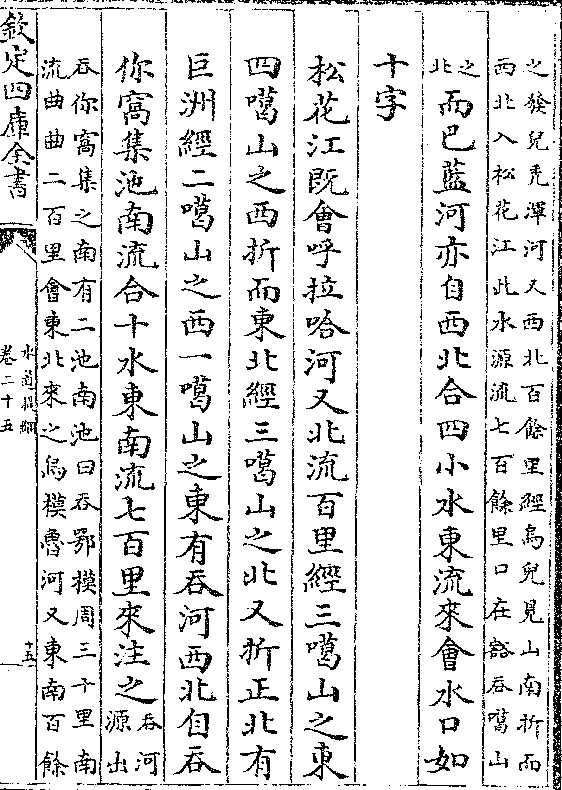 之發兒禿渾河又西北百餘里經烏兒見山南折而
西北入松花江此水源流七百餘里口在豁吞噶山
之
北
而巴藍河亦自西北合四小水東流來會水口如
十字
松花江既會呼拉哈河又北流百里經三噶山之東
四噶山之西折而東北經三噶山之北又折正北有
巨洲經二噶山之西一噶山之東有吞河西北自吞
你窩集池南流合十水東南流七百里來注之
吞河
源出
吞你窩集之南有二池南池曰吞鄂模周三十里南
流曲曲二百里會東北來之烏模魯河又東南百餘
欽定四庫全書
水道提綱
卷二十五
十五